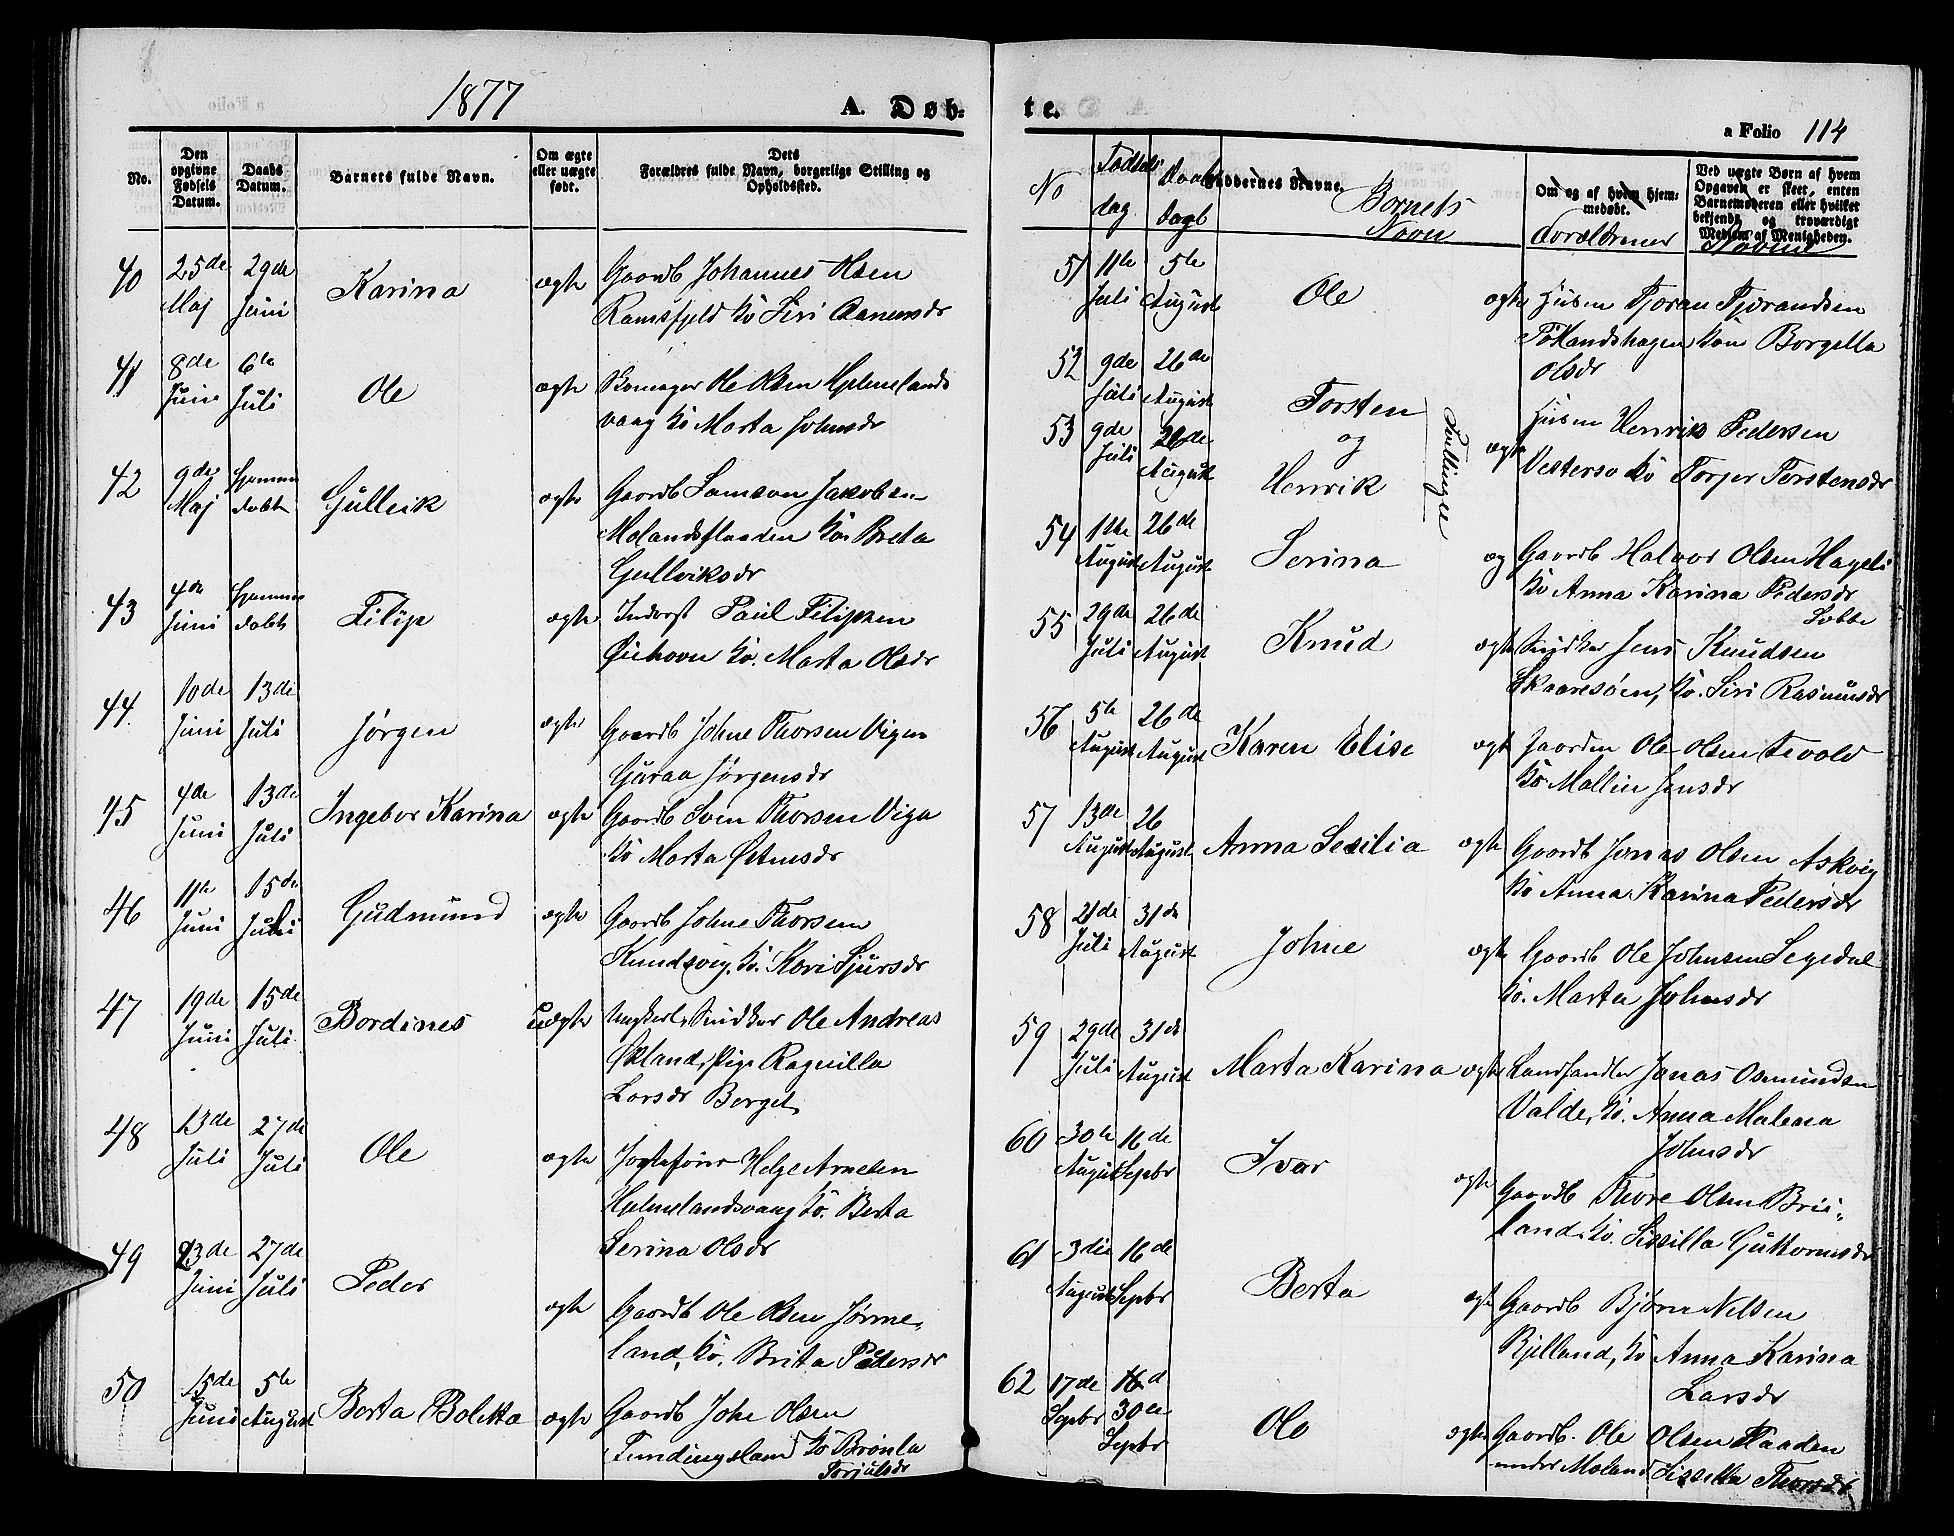 1877
A. Døb-
No.
Den opgivne Fødsels Datum.
Daabs Datum.
Barnets fulde Navn.
Om ægte eller uægte født.
Dets Forældres fulde Navn, borgerlige Stilling og Opholdssted.
40 25de Maj 29de Juni Karina ægte Gaardb Johannes Olsen
Ramsfjeld Ko Siri Aanensdr
41 8de Juni 6te Juli Ole ægte Skomager Ole Olsen Helmelands
vaag Ko Marta Johnsdr
42 9de Maj Hjemme døbt Gullvik ægte Gaardb Samson Jakobsen
Molandsflaaden Ko Breta
Gullviksdr
43 4de Juni Hjemme døbt Filip ægte Inderst Paul Filipsen
Ko. Marta Olsdr
44 10de Juni 13di Juli Jørgen ægte Gaardb Johne Thorsen Vigen
Guraa Jørgensdr
45 4de Juni 13de Juli Ingebor Karina ægte Gaardb Sven Thorsen Viga
Ko Marta Østensdr
46 11te Juni 15de Juli Gudmund ægte Gaardb Johne Thorsen
Knudsvig, Ko. Kari Sjursdr
47 19de Juni 15de Juli Bordines uægte Ungkarl, Snidker Ole Andreas
Økland, Pige Ragnilla
Larsdr Berget
48 13de Juli 27de Juli Ole ægte Helge Arnesen
Helmelandsvaag Ko. Berta
Serina Olsdr
49 23de Juni 27de Juli Peder ægte Gaardb Ole Olsen Jørme-
land, Ko. Brita Pedersdr
50 15de Juni 5te August Berta Boletta ægte Gaardb Johe Olsen
Tundingsland Ko Brønla
Torjulsdr
te.
a Folio 114
No
Fødsels dag
Daab dag
Faddernes Navne.
Bornets Navn
Om og af hvem hjemmedøbt.
Forældrenes Navne
Ved uægte Børn af hvem Opgaven er skeet, enten Barnemoderen eller hvilket bekjendt og troværdigt Medlem af Menigheden.
51 11te Juli 5te August Ole ægte Husm Tjøran Tjørandsen
Tøtlandshagen Kone Borgilla
Olsdr
52 9de Juli 26de August Torsten
og
Tvillinger
53 9de Juli 26de August Henrik ægte Husm Henrik Pedersen
Vestersø Ko Torjer Torstensdr
54 1ste August 26de August Serina æg Gaardb Halvor Olsen Hageli
Ko Anna Karina Pedersdr
55 29de Juli 26de August Knud ægte Snidker Jens Knudsen
Skaaresøen, Ko. Siri Rasmusdr
56 5te August 26de August Karen Elise ægte Gaardm Ole Olsen Tevold
Ko Mallin Jensdr
57 13de August 26 August Anna Sesilia ægte Gaardb Jonas Olsen Askvig
Ko Anna Karina Pedersdr
58 21de Juli 31de August Johne ægte Gaardb Ole Johnsen Segedal
Ko. Marta Johnsdr
59 29de Juli 31de August Marta Karina ægte Landhandler Jonas Osmundsen
Valde, Ko. Anna Malena
Johnsdr
60 30te August 16de Sepbr Ivar ægte Gaardb Thore Olsen Brii-
land, Ko. Sissilla Guttormsdr
61 3die August 16de Sepbr Berta ægte Gaardb Bjørn Nelsen
Kjilland, Ko Anna Karina
Larsdr
62 17de Sepbr 30te Sepbr Ole ægte Gaardb. Ole Olsen Flaaden
under Moland Sissilla Thorsdr